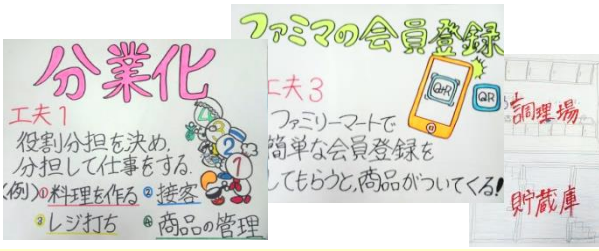 分業化
工夫1
役割分担を決め、
分担して仕事をする.
(例)①料理を作る ②接客
③レジ打ち ④商品の管理
4
3
2
1
ファミマの会員登録
QR
QR
工夫3
ファミリーマートで
簡単な会員登録を
してもらうと,商品がついてくる!
調理場
貯蔵庫